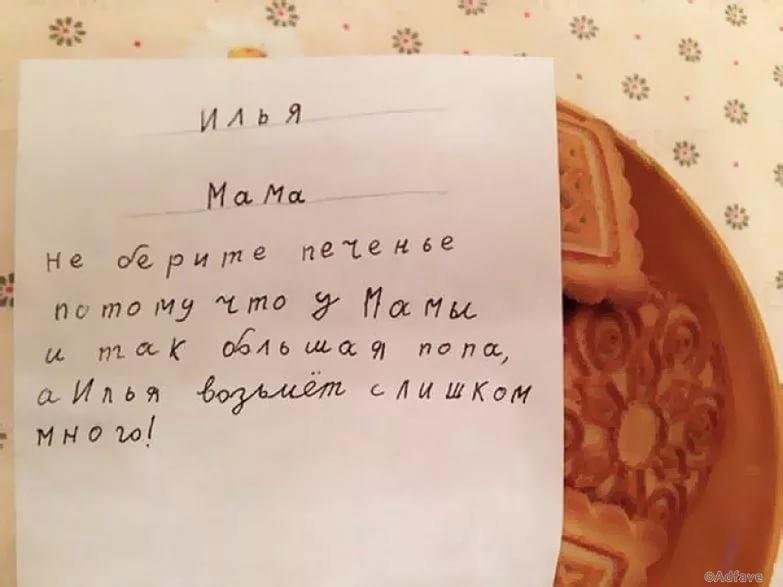 Илья
Мама
Не берите печенье
потому что у Мамы
и так большая попа,
а Илья возьмёт слишком
много!
©Adfave